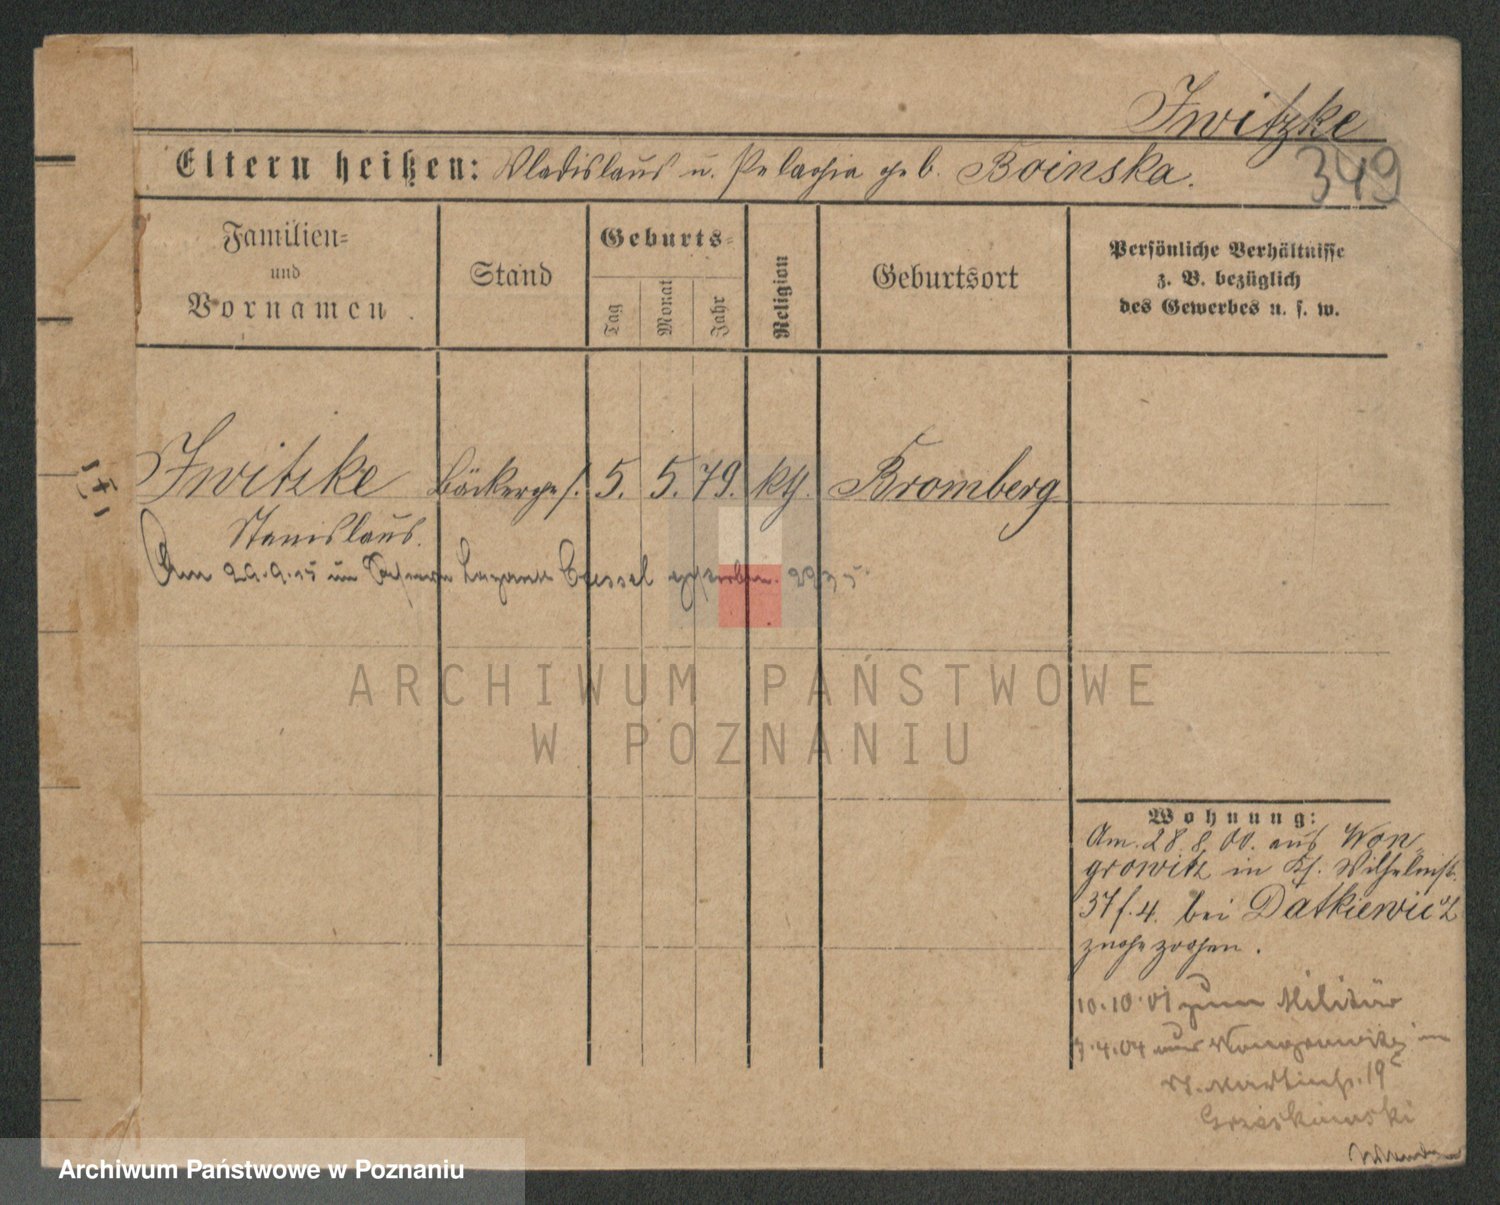 Iwitzke
349
Eltern heißen: Wladislaus u. Pelagia geb. Boinska.
Familien=
und
Vornamen.
Stand
Geburts=
Tag
Monat
Jahr
Religion
Geburtsort
Persönliche Verhältnisse
z. B. bezüglich
des Gewerbes u. s. w.
Iwitzke
Bäckerges. 5. 5. 79. kth. Bromberg
Stanislaus.
Am 29.9.15 im Lazarett gestorben.
ARCHIWUM PAŃSTWOWE
W POZNANIU
Wohnung:
Am 28.8.00. aus Won-
growitz in Wilhelmst.
37 f. 4. bei Datkiewicz
zugezogen.
10.10.01 zum Militär
3.4.04 aus Wongrowitz in
St. Martinstr. 19
Archiwum Państwowe w Poznaniu